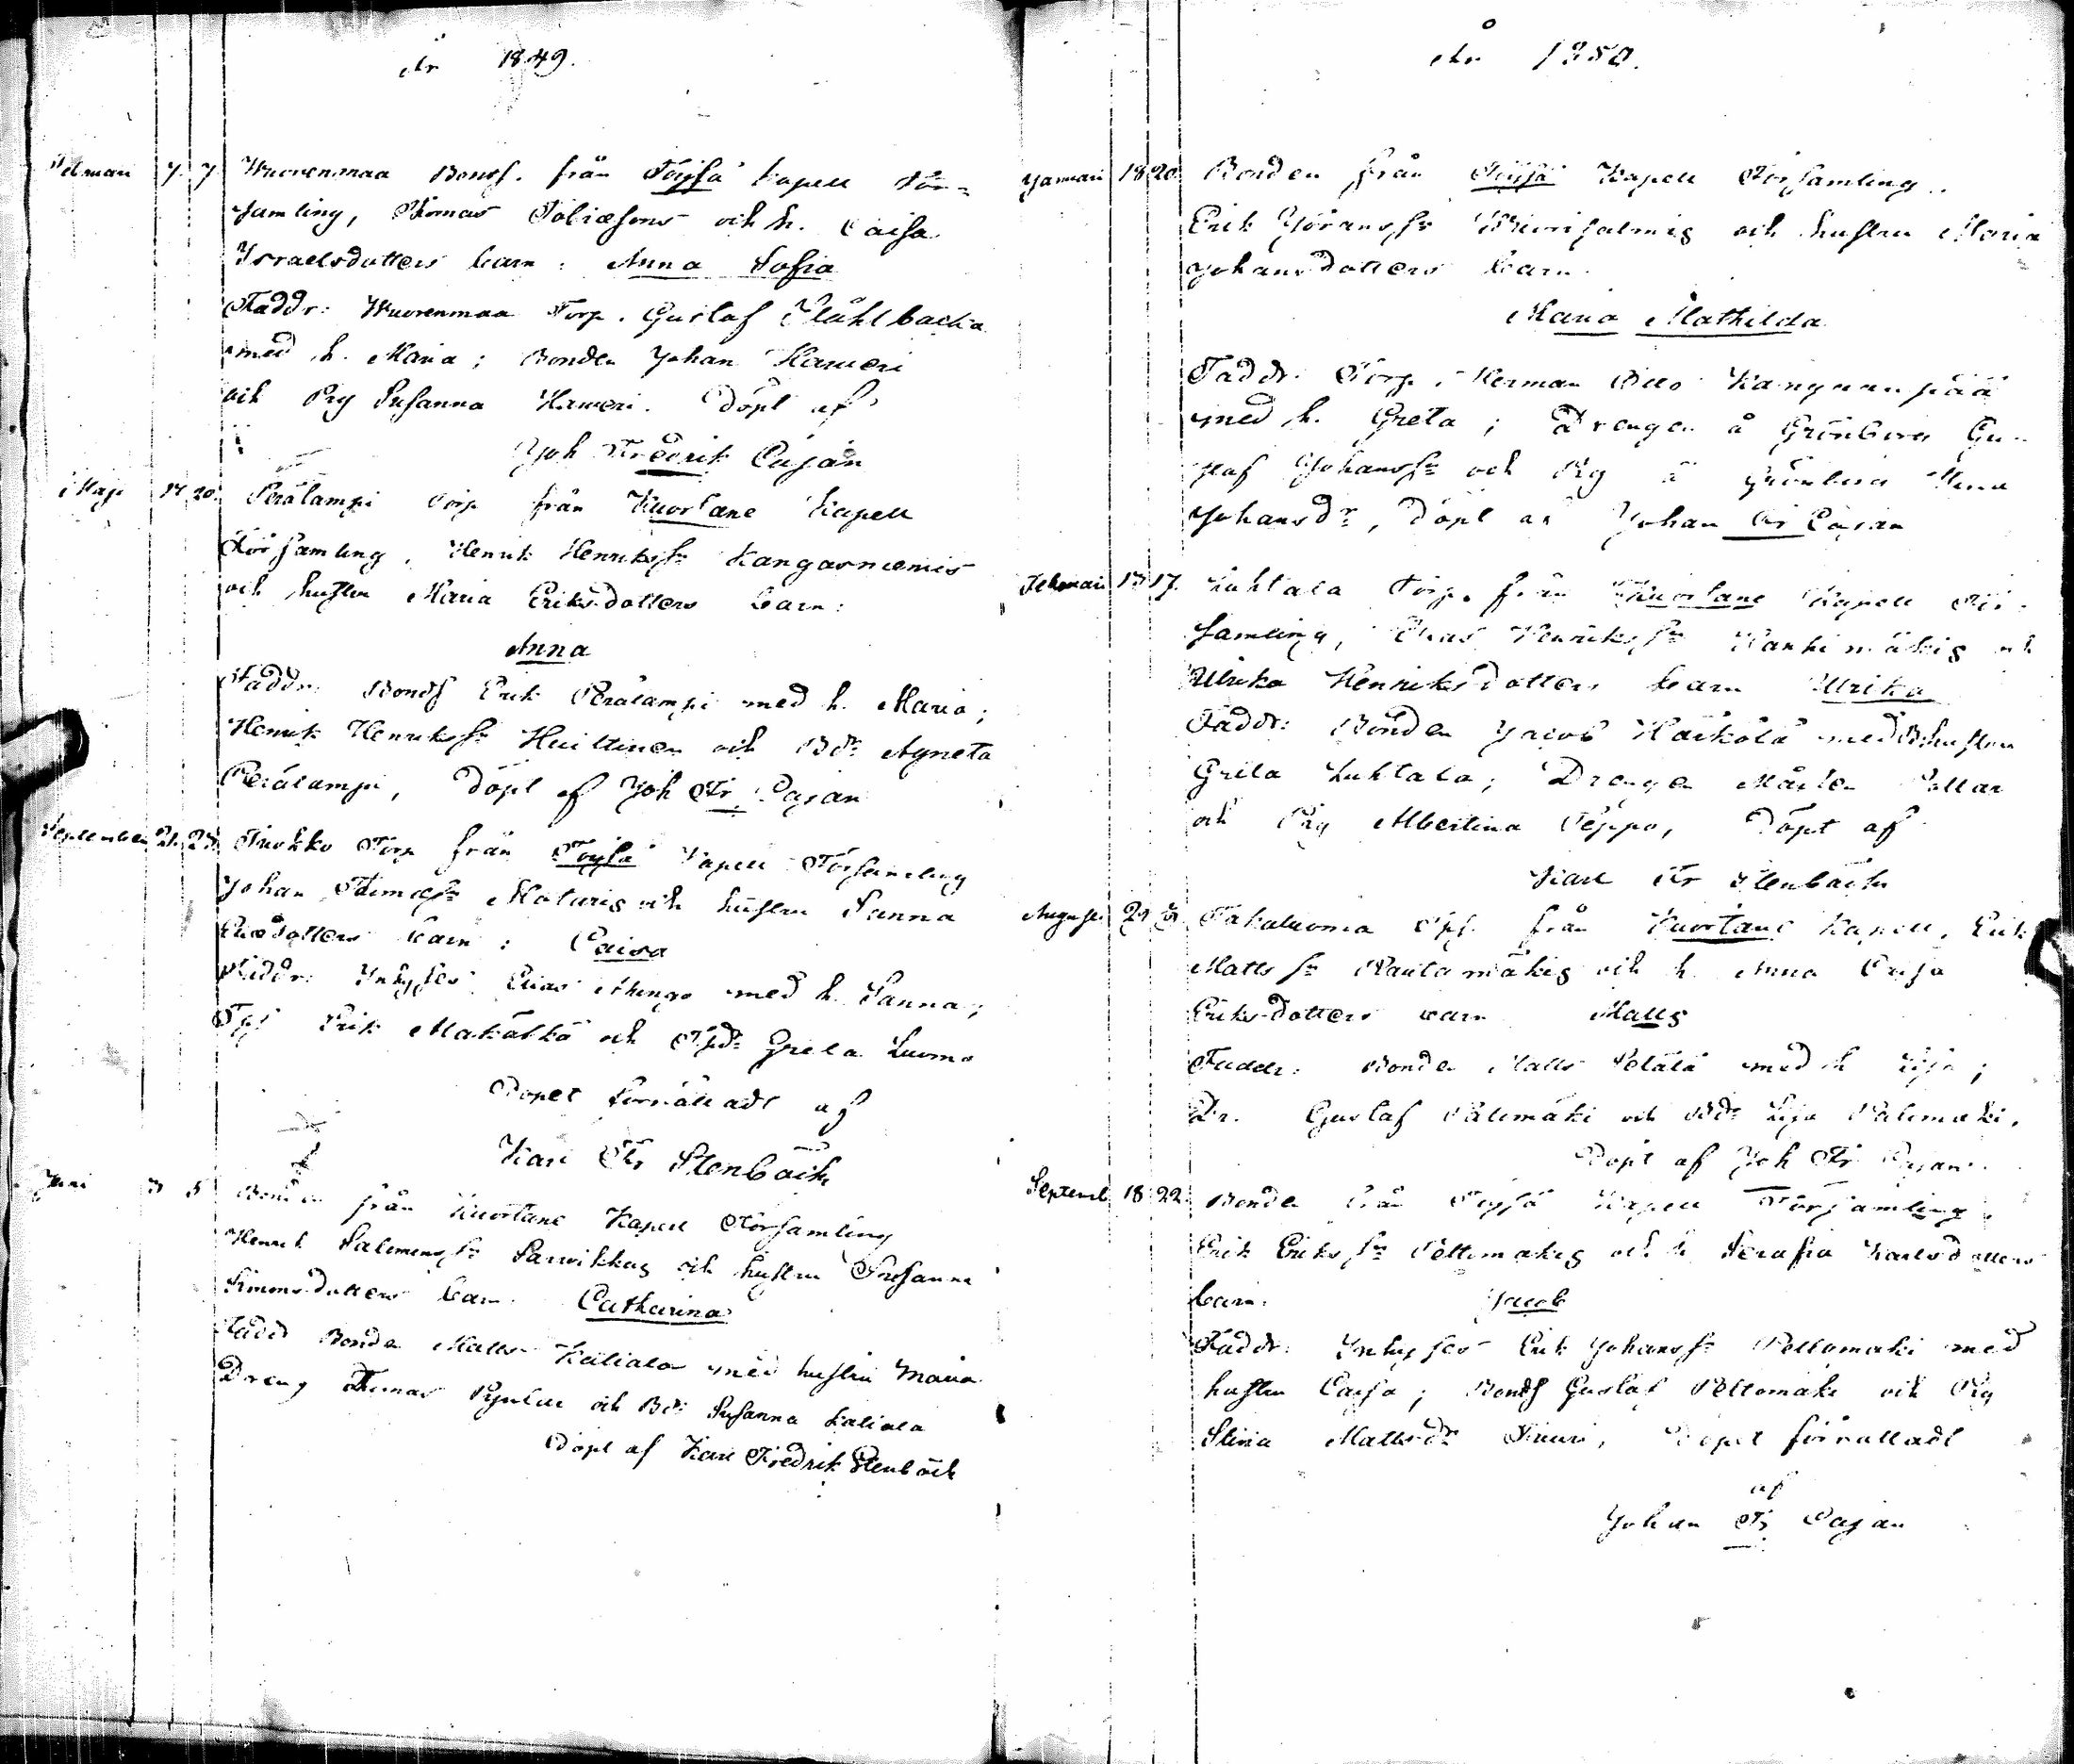 År 1849.
Februari 7. 7 Wuorenmaa Bonds. från Töysä Kapell För=
samling, Thomas Tobiæsons och h. Caisa
Israelsdotters barn: Anna Sofia
Faddr: Wuorenmaa Torp. Gustaf Ståhlbacka
med h. Maria; Bonden Johan Haweri
och Pig Susanna Haweri. Döpt af
Joh Fredrik Cajan
Maji 17 20. Perälampi Torp från Kuortane Kapell
Församling, Henrik Henrikss:n Kangasniemis
och hustru Maria Eriksdotters barn:
Anna
Faddr: Bonds Erik Perälampi med h. Maria;
Henrik Henrikss:n Huittinen och Bdr Agneta
Perälampi, Döpt af Joh Fr. Cajan
September 21. 23. Torp från Töysä Kapell Församling
Johan Maturis och hustru Sanna
barn: Caisa
Faddr: Inhyses Elias med h. Sanna;
Erik och Greta Luoma
Dopet förrättadt af
Karl Fr Stenbäck
Juni 3 5 Bonden från Kuortane Kapell Församling
Henrik Salomonss:n Sarvikkas och hustru Susanna
Simmsdotters barn Catharina
Fadd Bonden Matts Kaliala med hustru Maria
Dreng Thomas och Bdr Susanna Kaliala
Döpt af Karl Fredrik Stenbäck
År 1850.
Januari 18 20 Bonden från Töysä Kapell Församling.
Erik Jöranss:n och hustru Maria
Johansdotters barn.
Maria Mathilda
Faddr. Torp. Herman Kangaanpää
med h. Greta; Drengen å Grönbera Gu-
staf Johanss:n och Pig å Grönbera
Johansdr, döpt af Johan Fr Cajan
Februari 13 17. Luhtala Torp. från Kuortane Kapell För-
samling, Elias Henrikss:n Hankimäkis och
Ulrika Henriksdotters barn Ulrika
Faddr: Bonden Jacob med hustru
Greta Luhtala; Drengen Mårten
och Pig Albertina Seppo, Döpt af
Karl Fr Stenbäck
Augusti 29 Takaluoma från Kuortane Kapell, Erik
Mattss:n Rautamäkis och h. Anna Caisa
Eriksdotters barn Matts
Faddr: Bonden Matts med h Lisa;
Dr. Gustaf Palomäki och Bdr Lisa Palomäki.
Döpt af Joh Fr Cajan.
Septemb 18 22. Bonden från Töysä Kapell Församling.
Erik Erikss:n Peltomäkis och h Serafia Karlsdotters
barn. Jacob
Faddr: Inhyses Erik Johanss:n Peltomäki med
hustru Caisa; Bonds Gustaf Peltomäki och Pig
Stina Mattsdr, Dopet förrättadt
af
Johan Fr Cajan